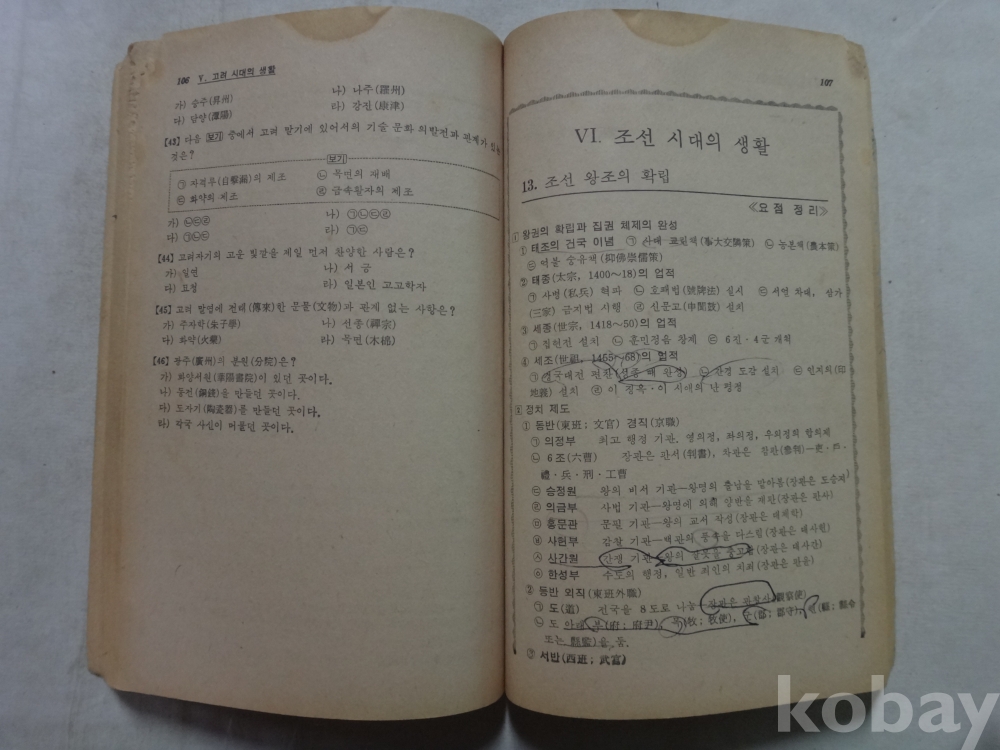 106 Ⅴ. 고려 시대의 생활
가) 승주(昇州) 나) 나주(羅州)
다) 담양(潭陽) 라) 강진(康津)
【43】 다음 보기 중에서 고려 말기에 있어서의 기술 문화의 발전과 관계가 있는
것은?
보기
㉠ 자격루(自擊漏)의 제조 ㉡ 목면의 재배
㉢ 화약의 제조 ㉣ 금속활자의 제조
가) ㉡㉢㉣ 나) ㉠㉡㉢㉣
다) ㉠㉡㉢ 라) ㉠㉢
【44】 고려자기의 고운 빛깔을 제일 먼저 찬양한 사람은?
가) 일연 나) 서 긍
다) 라) 일본인 고고학자
【45】 고려 말엽에 전래(傳來)한 문물(文物)과 관계 없는 사항은?
가) 주자학(朱子學) 나) 선종(禪宗)
다) 화약(火藥) 라) 목면(木棉)
【46】 광주(廣州)의 분원(分院)은?
가) 화양서원(華陽書院)이 있던 곳이다.
나) 동전(銅錢)을 만들던 곳이다.
다) 도자기(陶瓷器)를 만들던 곳이다.
라) 각국 사신이 머물던 곳이다.
107
Ⅵ. 조선 시대의 생활
13. 조선 왕조의 확립
《요점 정리》
1 왕권의 확립과 집권 체제의 완성
① 태조의 건국 이념 ㉠ 사대 교린책(事大交隣策) ㉡ 농본책(農本策)
㉢ 억불 숭유책(抑佛崇儒策)
② 태종(太宗, 1400〜18)의 업적
㉠ 사병(私兵) 혁파 ㉡ 호패법(號牌法) 설시 ㉢ 서얼 차대, 삼가
(三家) 금지법 시행 ㉣ 신문고(申聞鼓) 설치
③ 세종(世宗, 1418〜50)의 업적
㉠ 집현전 설치 ㉡ 훈민정음 창제 ㉢ 6진·4군 개척
④ 세조(世祖, 1455〜68)의 업적
㉠ 경국대전 편찬(성종 때 완성) ㉡ 간경 도감 설치 ㉢ 인지의(印
地義) 설치 ㉣ 이 징옥·이 시애의 난 평정
2 정치 제도
① 동반(東班; 文官) 경직(京職)
㉠ 의정부 최고 행정 기관. 영의정, 좌의정, 우의정의 합의제
㉡ 6조(六曹) 장관은 판서(判書), 차관은 참판(參判)—吏·戶·
禮·兵·刑·工曹
㉢ 승정원 왕의 비서 기관—왕명의 출납을 맡아봄(장관은 도승지)
㉣ 의금부 사법 기관—왕명에 의해 양반을 재판(장관은 판사)
㉤ 홍문관 문필 기관—왕의 교서 작성(장관은 대제학)
㉥ 사헌부 감찰 기관—백관의 풍속을 다스림(장관은 대사헌)
㉦ 사간원 간쟁 기관—왕의 잘못을 충고(장관은 대사간)
㉧ 한성부 수도의 행정, 일반 죄인의 치죄(장관은 판윤)
② 동반 외직(東班外職)
㉠ 도(道) 전국을 8도로 나눔—장관은 관찰사(觀察使)
㉡ 도 아래 부(府; 府尹), 목(牧; 牧使), 군(郡; 郡守), 현(縣; 縣令
또는 縣監)을 둠.
③ 서반(西班; 武官)
kobay